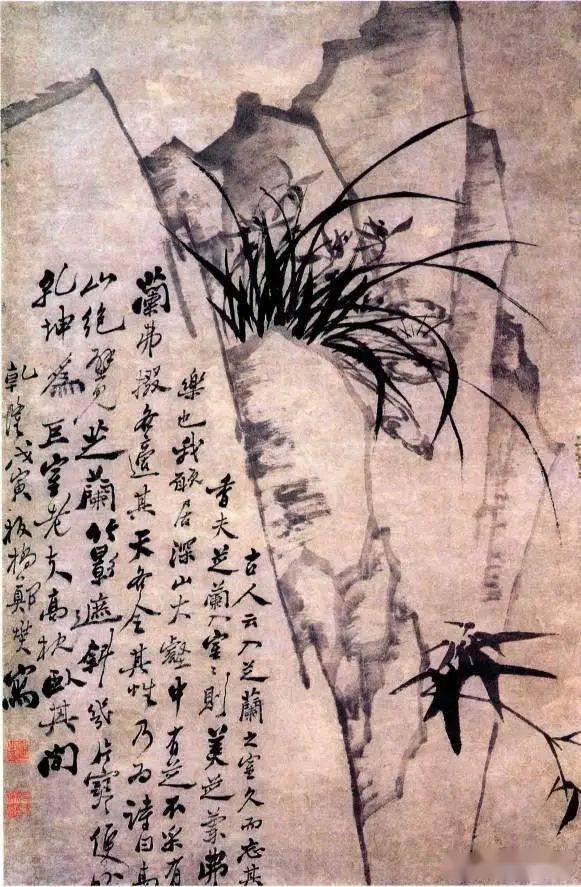 古人云入芝蘭之室久而忘其
香夫芝蘭入室〻則美芝蘭弗
樂也我願居深山大壑中有芝不采有
蘭弗掇各適其天各全其性乃為詩曰高
山絕壁見芝蘭竹影遮斜幾片寒便以
乾坤為巨室老夫高枕臥其間
乾隆戊寅板橋鄭燮寫